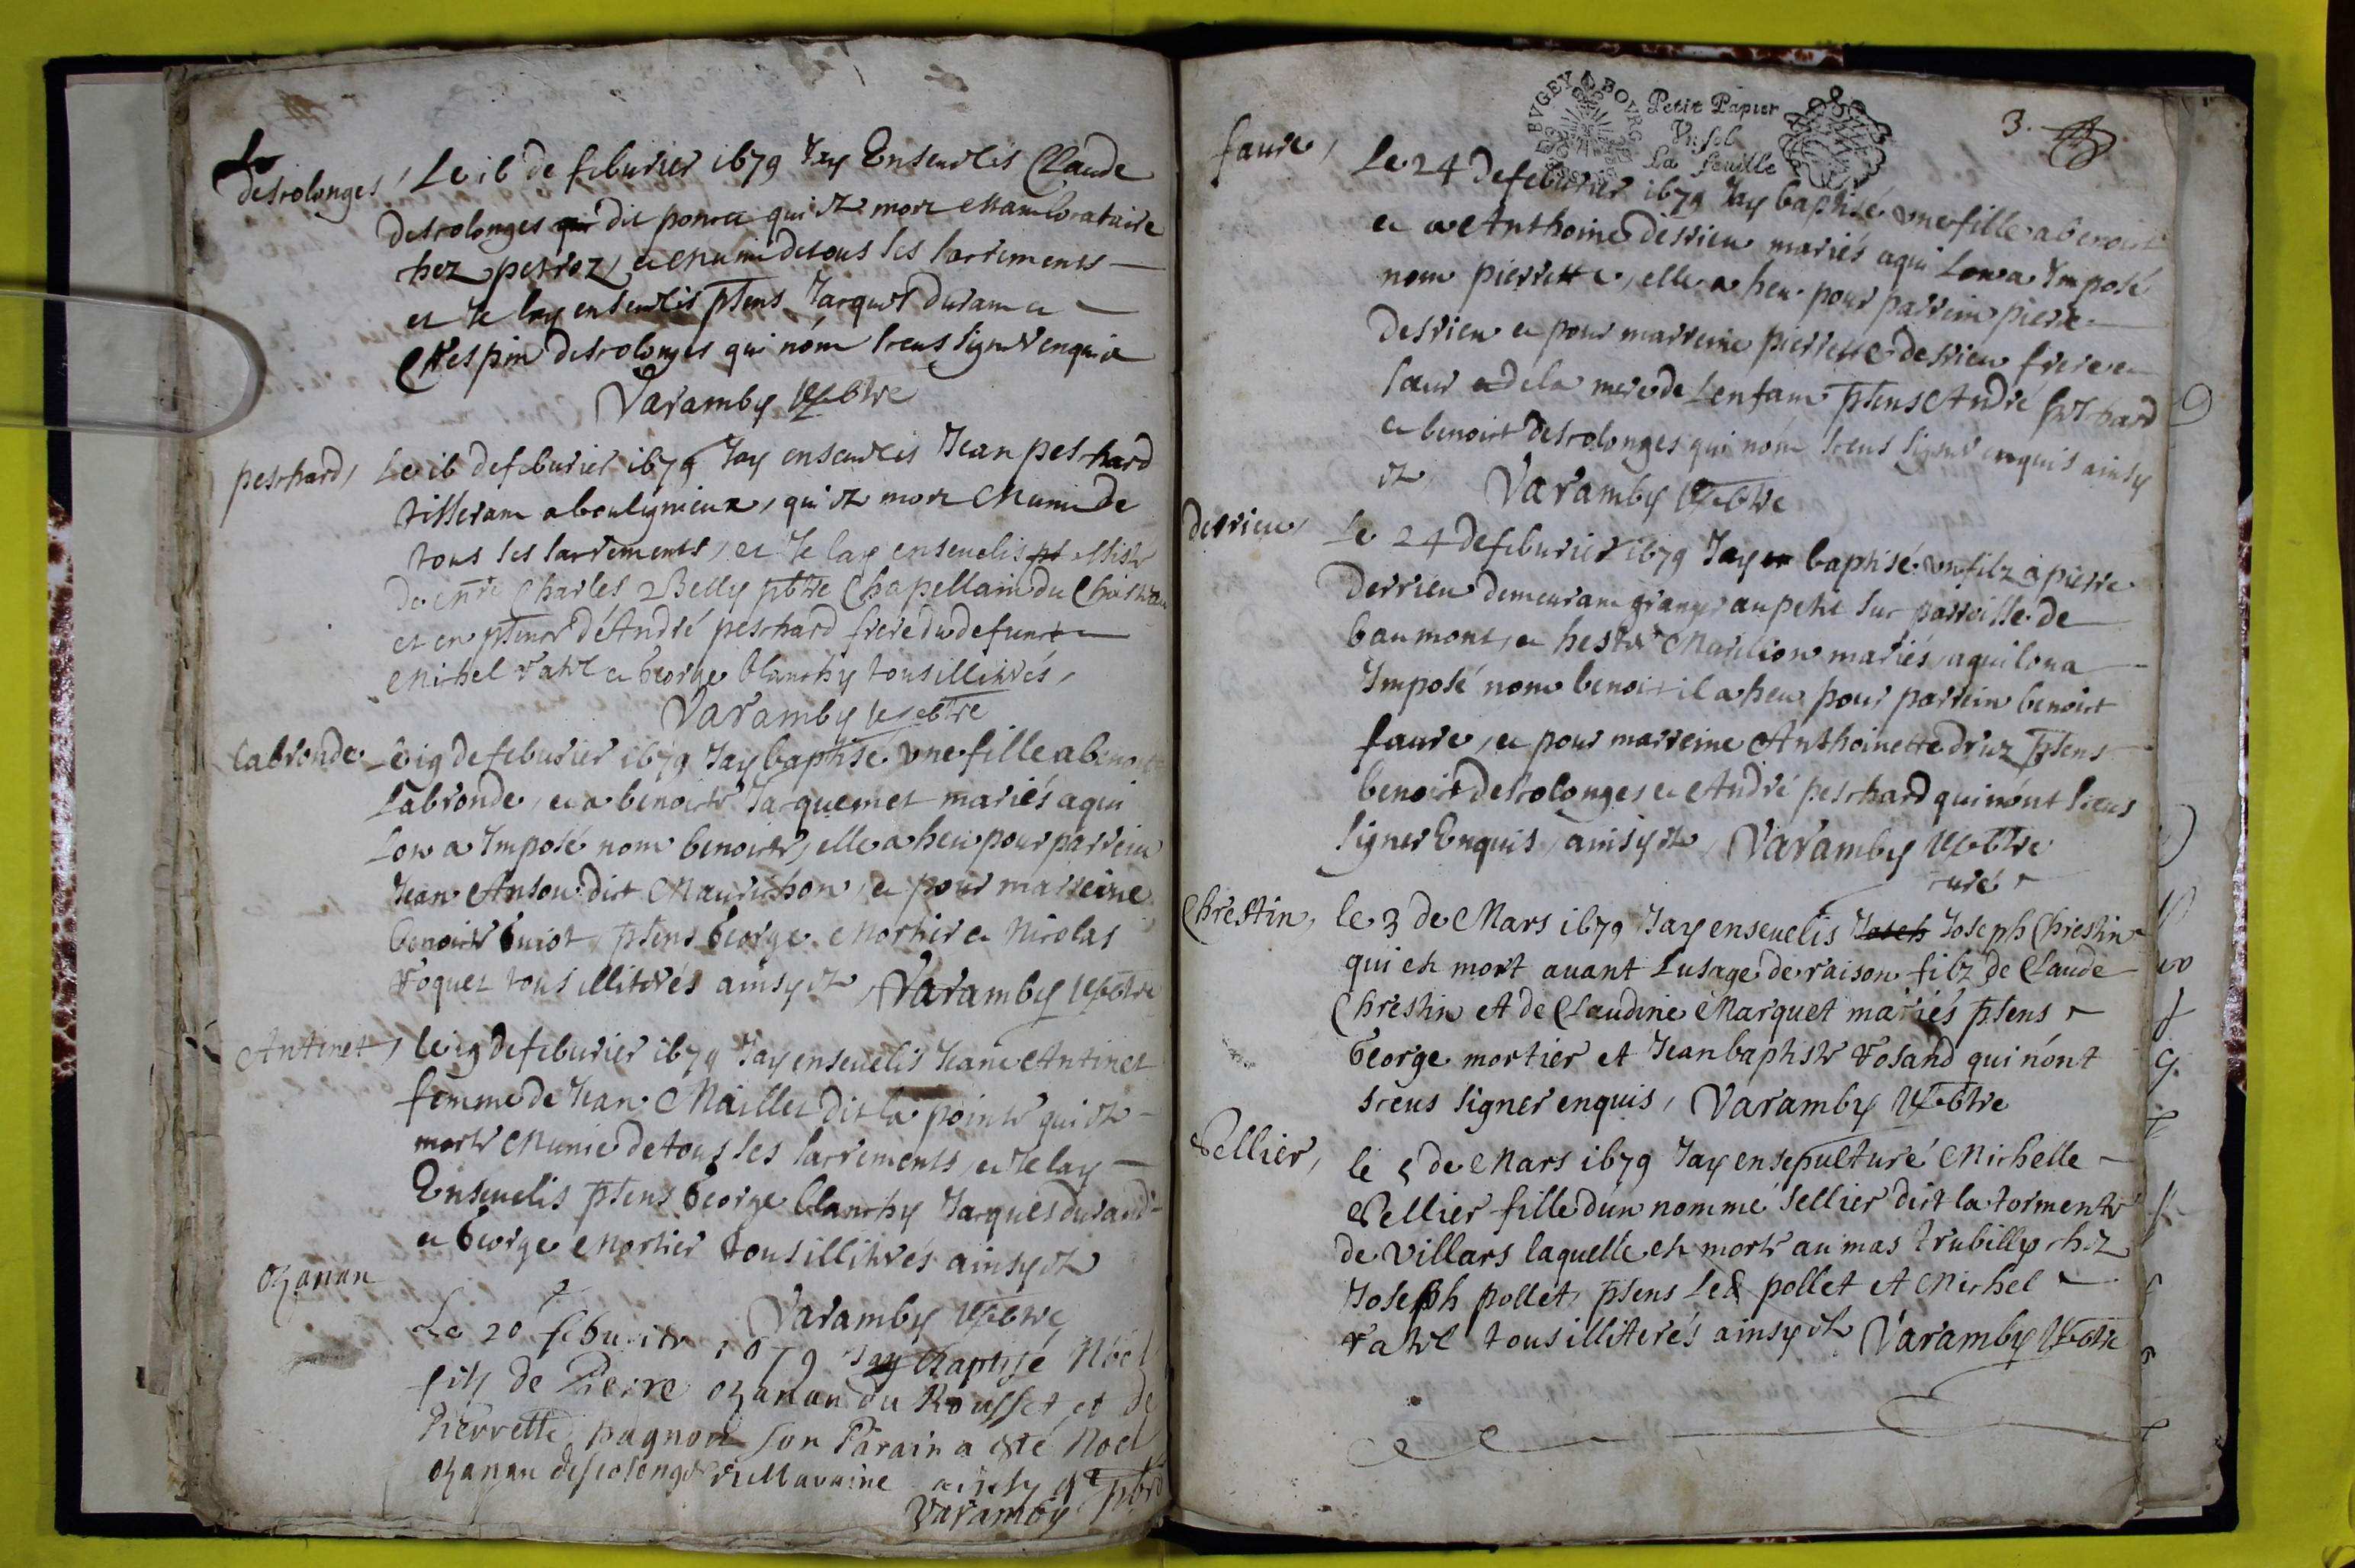 descolonges, Le 16 de feburier 1679 Jay Enseuelis Claude
descolonges dit qui est mort locataire
chez perroz, et muni de tous ses sacrements
et Je lay enseuelis ptens Jacques durant et
Crespin descolonges qui nont sceus signer enquis
Varamby ptbre
peschard, Le 16 de feburier 1679 Jay enseuelis Jean peschard
tisseram a bouligneux, qui est mort Muni de
tous ses sacrements, et Je lay enseuelis
Charles Belly ptbre Chapellain du Chasteau
et en ptence d'André peschard frere du defunct
Michel et George blanchy tous illiterés,
Varamby ptbre
Labronde Le 19 de feburier 1679 Jay baptisé vne fille a benoist
Labronde, et a benoiste Jacquemet mariés a qui
Lon a Imposé nom benoiste, elle a heu pour parrein
Jean Anson dit Maurichon, et pour marreine
benoiste Guiot, ptens George Mortier et Nicolas
voquet tous illiterés ainsy est Varamby ptbre
Antinet, le 19 de feburier 1679 Jay enseuelis Jeane Antinet
femme de Jean Maillet dit la pointe qui est
morte Munie de tous ses sacrements, et Je lay
Enseuelis ptens George blanchy Jacques durand
et George Mortier tous illiterés ainsy est
Varamby ptbre
Ozanan
Le 20 feburier 1679 Jay Baptisé Noel
fils de Pierre Ozanan du Rousset et de
Pierrette pagnon son Parain a esté Noel
Ozanan descolonges ainsy est
Varamby ptbre
BVGEY BOVRG
Petit Papier
Vn sol
La feuille
3.
faure,
Le 24 de feburier 1679 Jay baptisé vne fille a benoist
et a Anthoine desrieu mariés a qui Lon a Imposé
nom pierrette, elle a heu pour parrein pierre
desrieu et pour marreine pierrette desrieu frere et
saur de la mere de Lenfant ptens André peschard
et benoist descolonges qui nont sceus signer enquis ainsy
est, Varamby ptbre
Derrieu, Le 24 de feburier 1679 Jay baptisé vn filz a pierre
Derrieu demeurant granger au petit suc parroisse de
baumont, et hester Marilion mariés, a qui lon a
Imposé nom benoist il a heu pour parrein benoist
faure, et pour marreine Anthoinette druz ptens
benoist descolonges et André peschard qui nont sceus
signer Enquis, ainsy est, Varamby ptbre
curé
Chrestin, le 3 de Mars 1679 Jay enseuelis Joseh Joseph Chrestin
qui est mort auant Lusage de raison filz de Claude
Chrestin et de Claudine Marquet mariés ptens
George mortier et Jean baptiste vosand qui n'ont
sceus signer enquis, Varamby ptbre
Pellier, le 5 de Mars 1679 Jay ensepulturé Michelle
Pellier fille d'un nommé Sellier dict la tormente
de villars laquelle est morte au mas trubilly chez
Joseph pollet, ptens led pollet et Michel
tous illiterés ainsy est Varamby ptbre